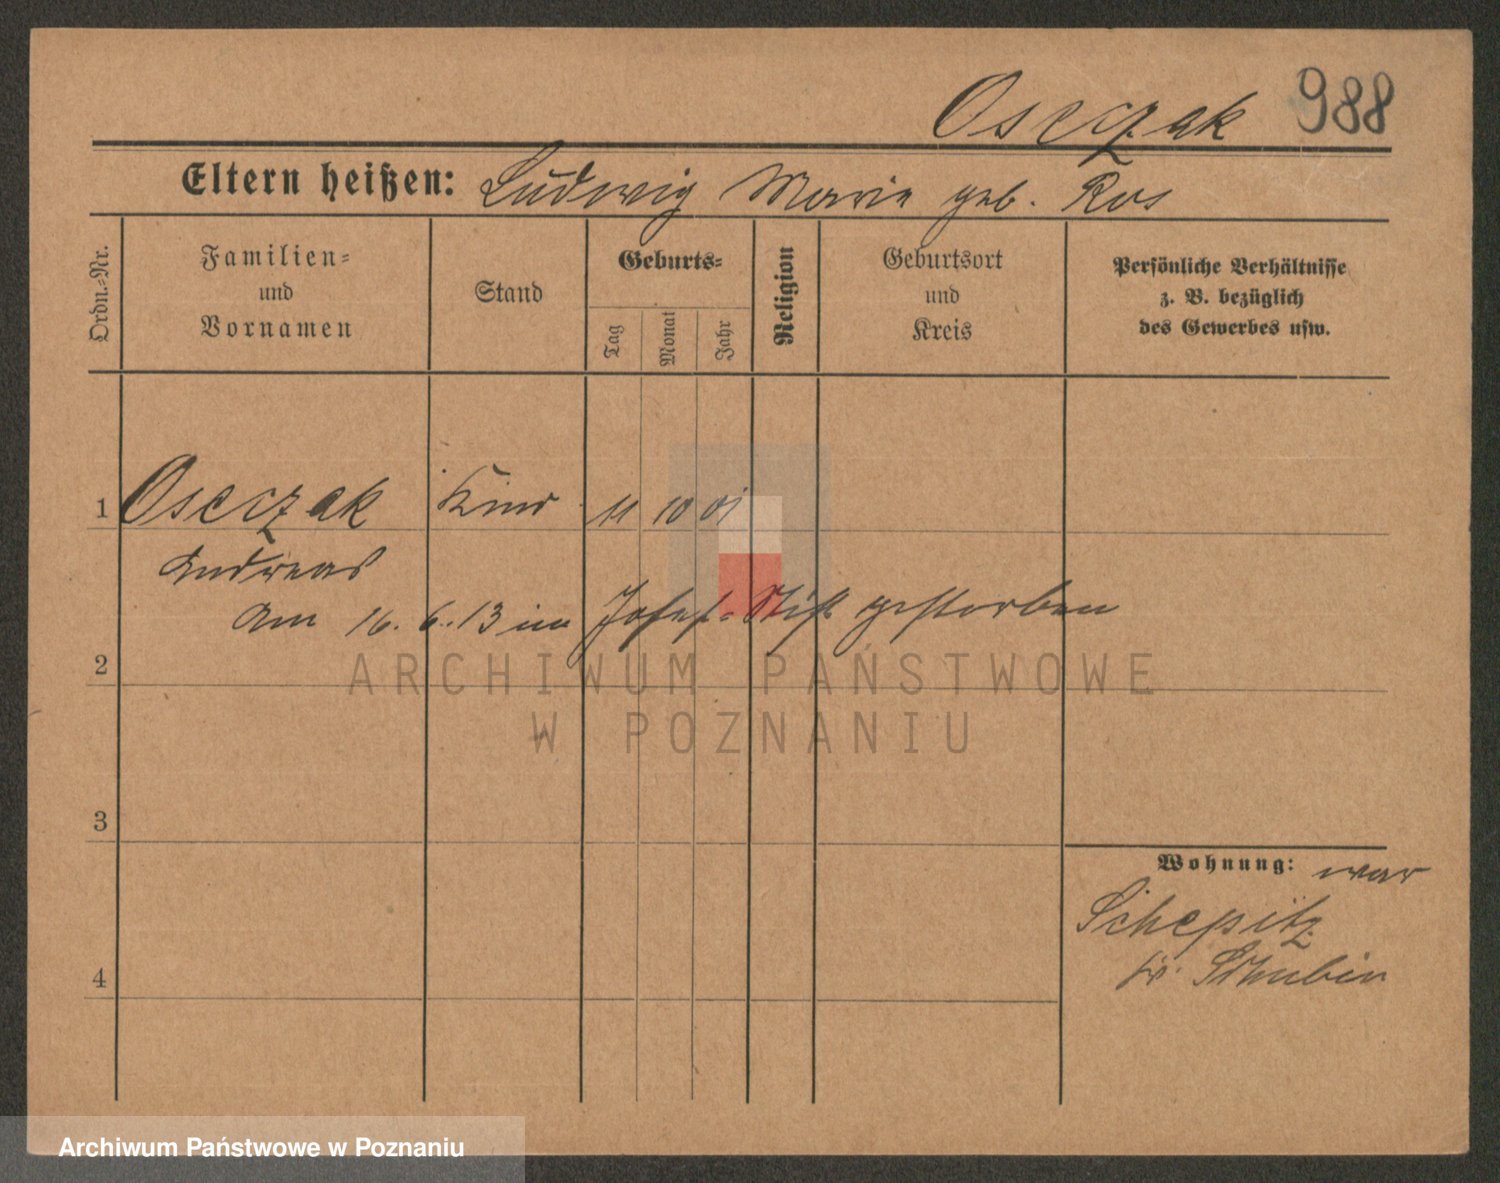 Oseczak 988
Eltern heißen: Ludwig Marie geb. Ros
Ordn.-Nr.
Familien-
und
Vornamen
Stand
Geburts-
Tag
Monat
Jahr
Religion
Geburtsort
und
Kreis
Persönliche Verhältnisse
z. B. bezüglich
des Gewerbes usw.
1 Oseczak Kind 11 10 01
Andreas
Am 16. 6. 13 im Josef-Stift gestorben
2
ARCHIWUM PAŃSTWOWE
W POZNANIU
3
Wohnung: war
Schepitz
Kr. Schubin
4
Archiwum Państwowe w Poznaniu